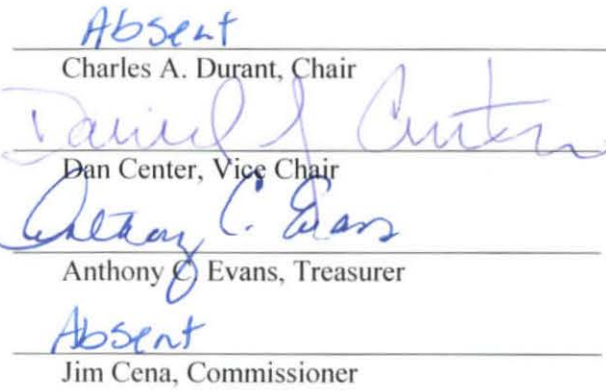 Absent
Charles A. Durant, Chair
Daniel J Center
Dan Center, Vice Chair
Anthony C. Evans
Anthony C Evans, Treasurer
Absent
Jim Cena, Commissioner